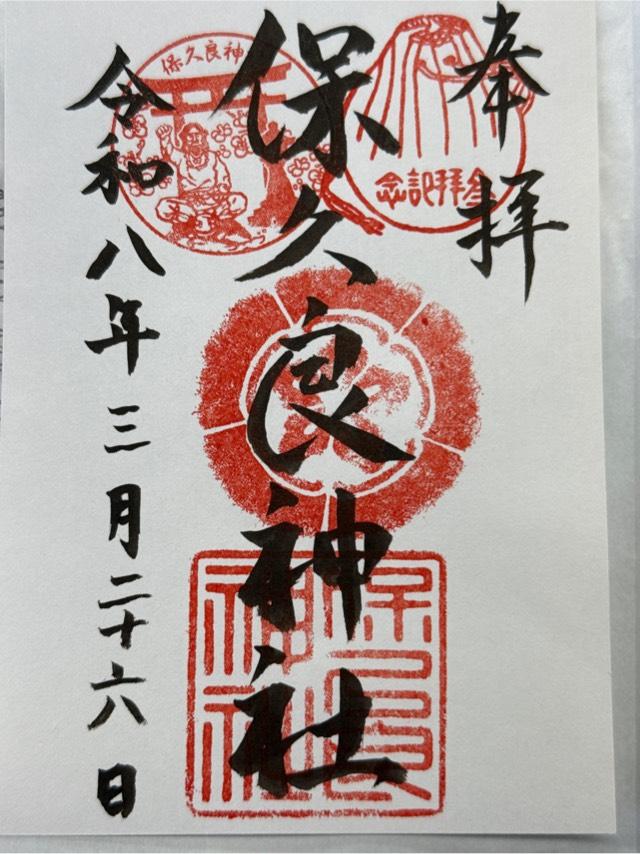 奉拝
参拝記念
保久良神社
保久良神社
保久良神社
令和八年三月二十六日